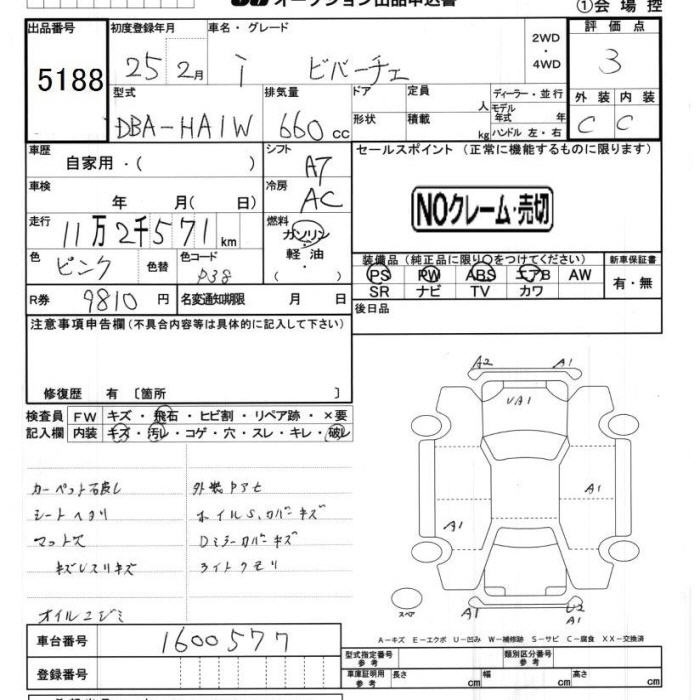 オークション出品申込書
①会場控
出品番号 初度登録年月 車名・グレード 2WD 評価点
5188 25 2月 i ビバーチェ ・4WD 3
型式 排気量 ドア 定員 人 ディーラー・並行 外装 内装
DBA-HA1W 660 cc 形状 積載 kg モデル年式 年 ハンドル 左・右 C C
車歴 自家用・( ) シフト A7 セールスポイント (正常に機能するものに限ります)
車検 年 月( 日) 冷房 AC NOクレーム・売切
走行 11万2千571 km 燃料 ガソリン・軽油・( )
装備品 (純正品に限り○をつけてください) 新車保証書
色 ピンク 色替 色コード P38 PS PW ABS エアB AW 有・無
SR ナビ TV カワ
R券 9810 円 名変通知期限 月 日 後日品
注意事項申告欄 (不具合内容等は具体的に記入して下さい)
修復歴 有 〔箇所 〕
検査員 FW キズ・飛石・ヒビ割・リペア跡・×要
記入欄 内装 キズ・汚レ・コゲ・穴・スレ・キレ・破レ
A2 A1
UA1
A1
A1
スペア A1 U2 A1
シートヘタリ ホイルS,カバーキズ
Dミラーカバーキズ
ライトクモリ
オイルニジミ
A-キズ E-エクボ U-凹み W-補修跡 S-サビ C-腐食 XX-交換済
車台番号 1600577 型式指定番号 参考 類別区分番号 参考
登録番号 車庫証明用 参考 長さ cm 幅 cm 高さ cm